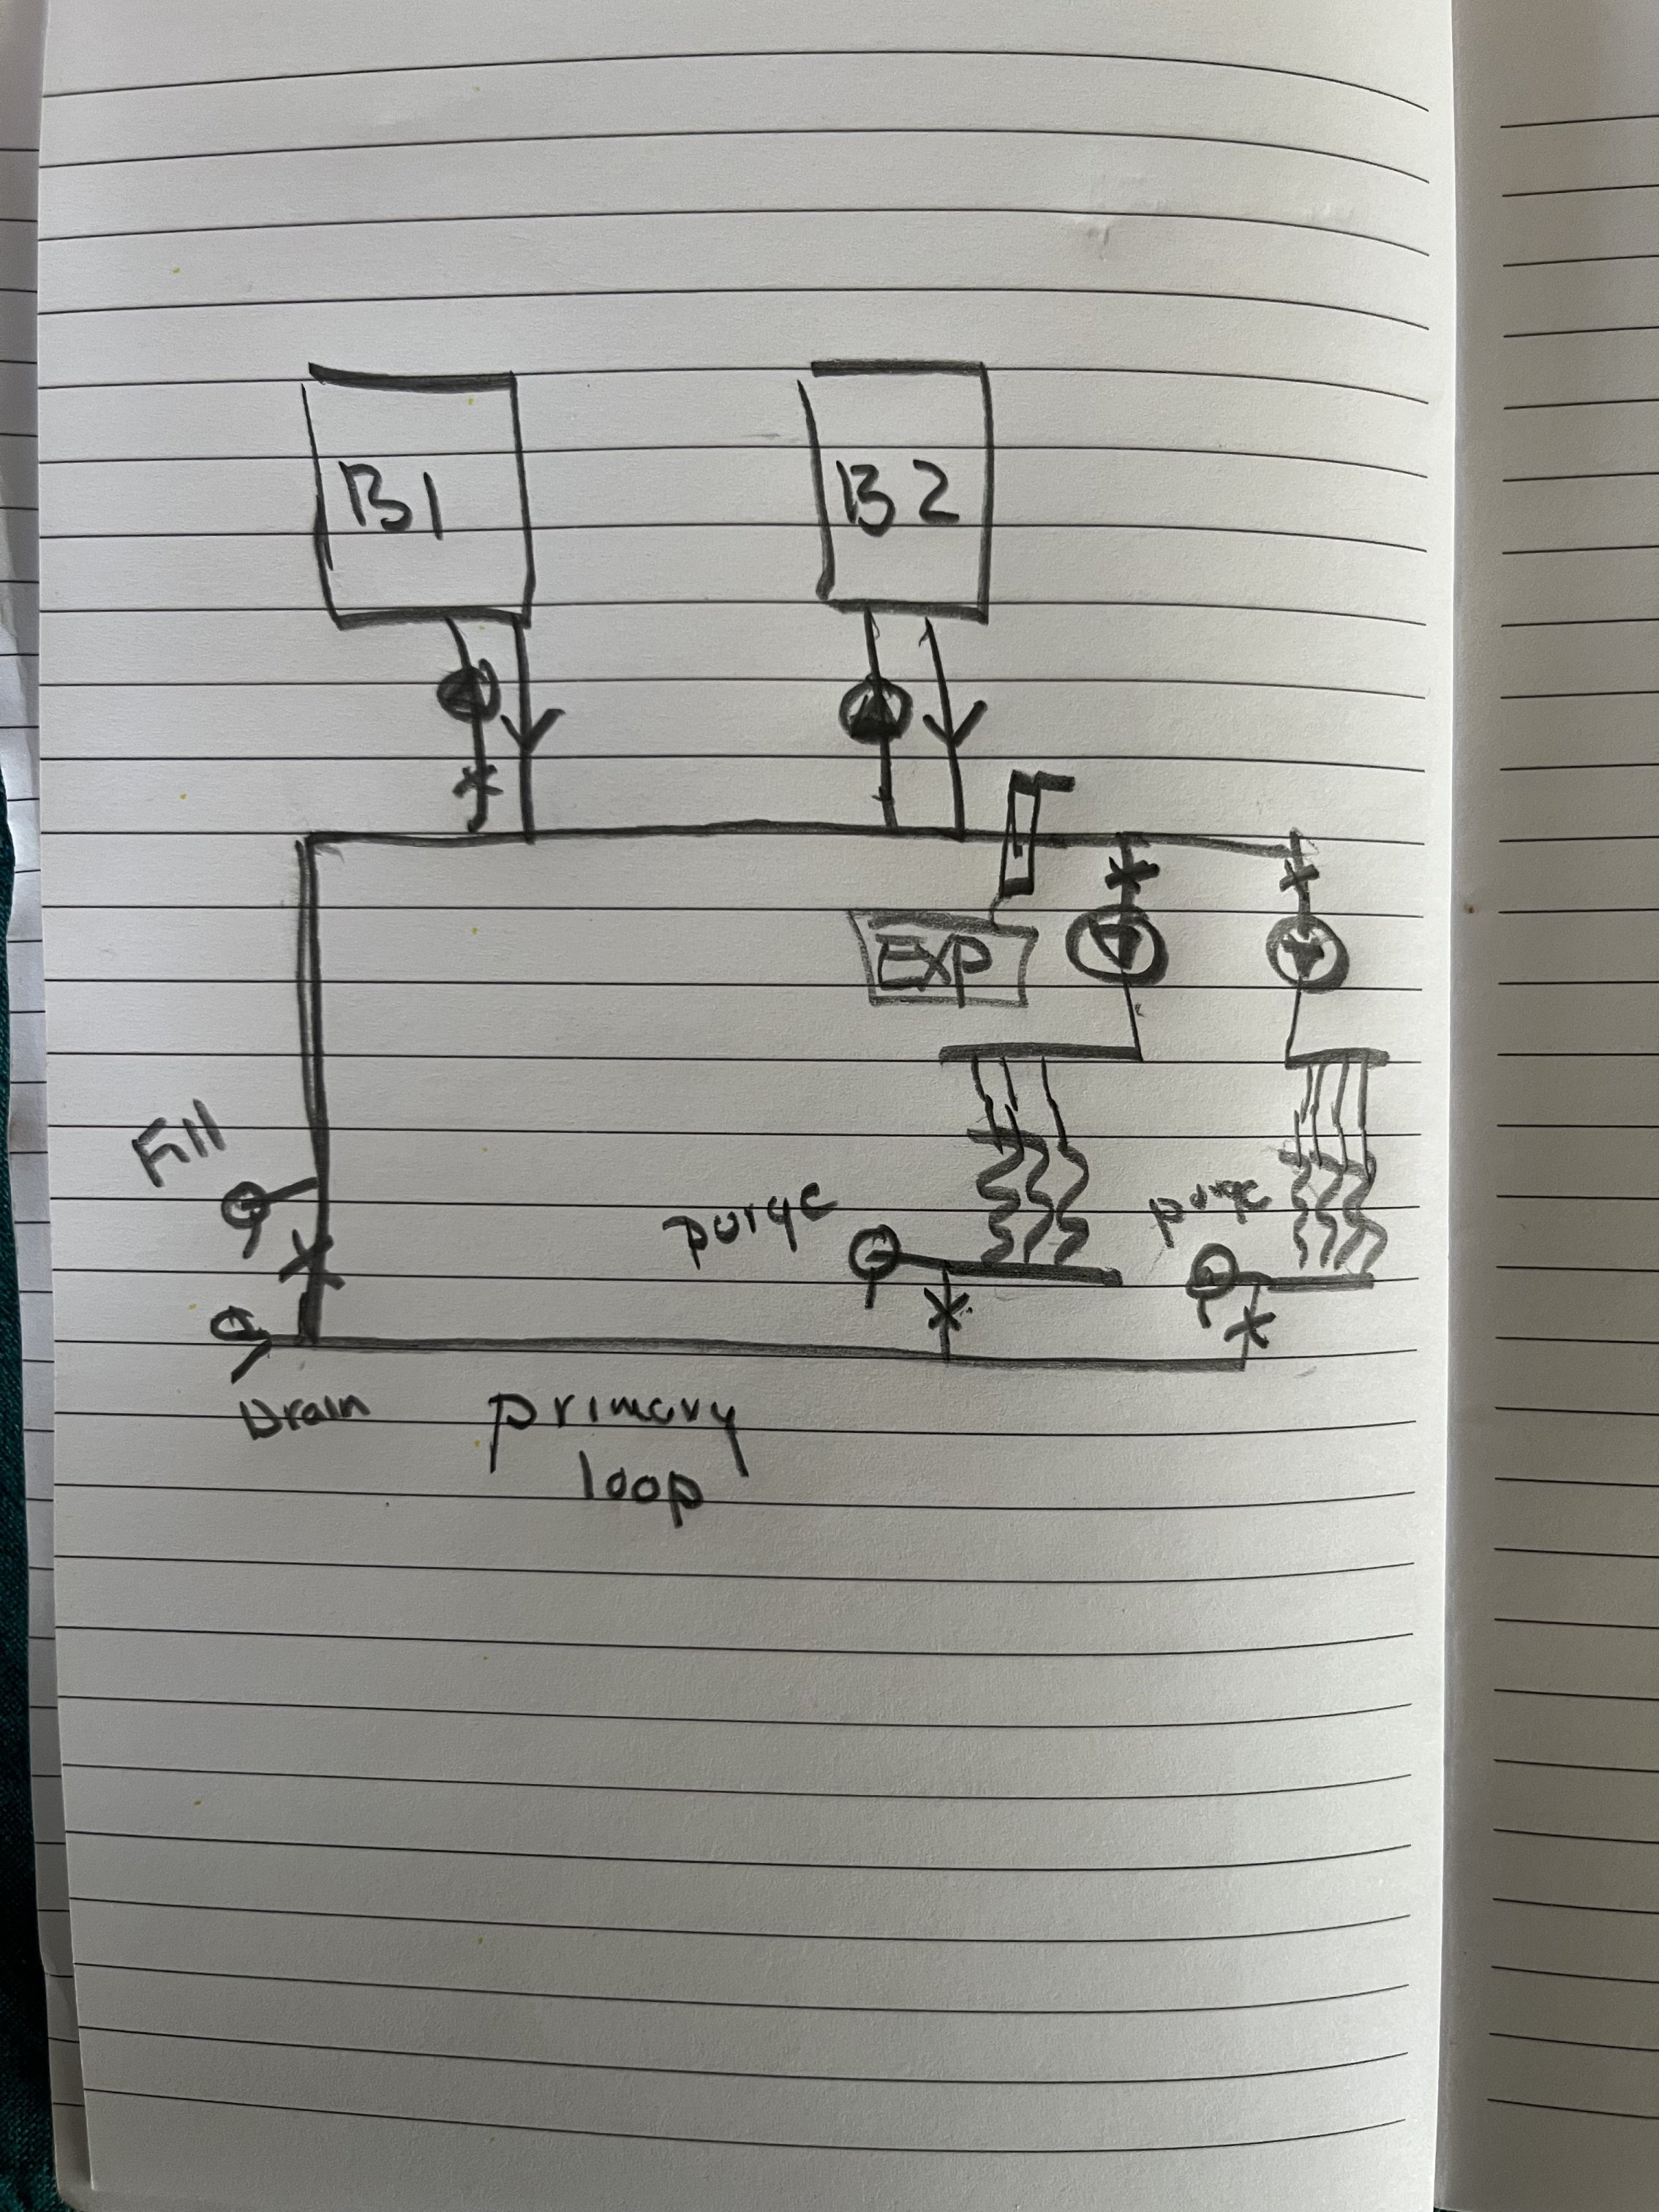 B1
B2
EXP
Fill
purge
purge
Drain
primary
loop